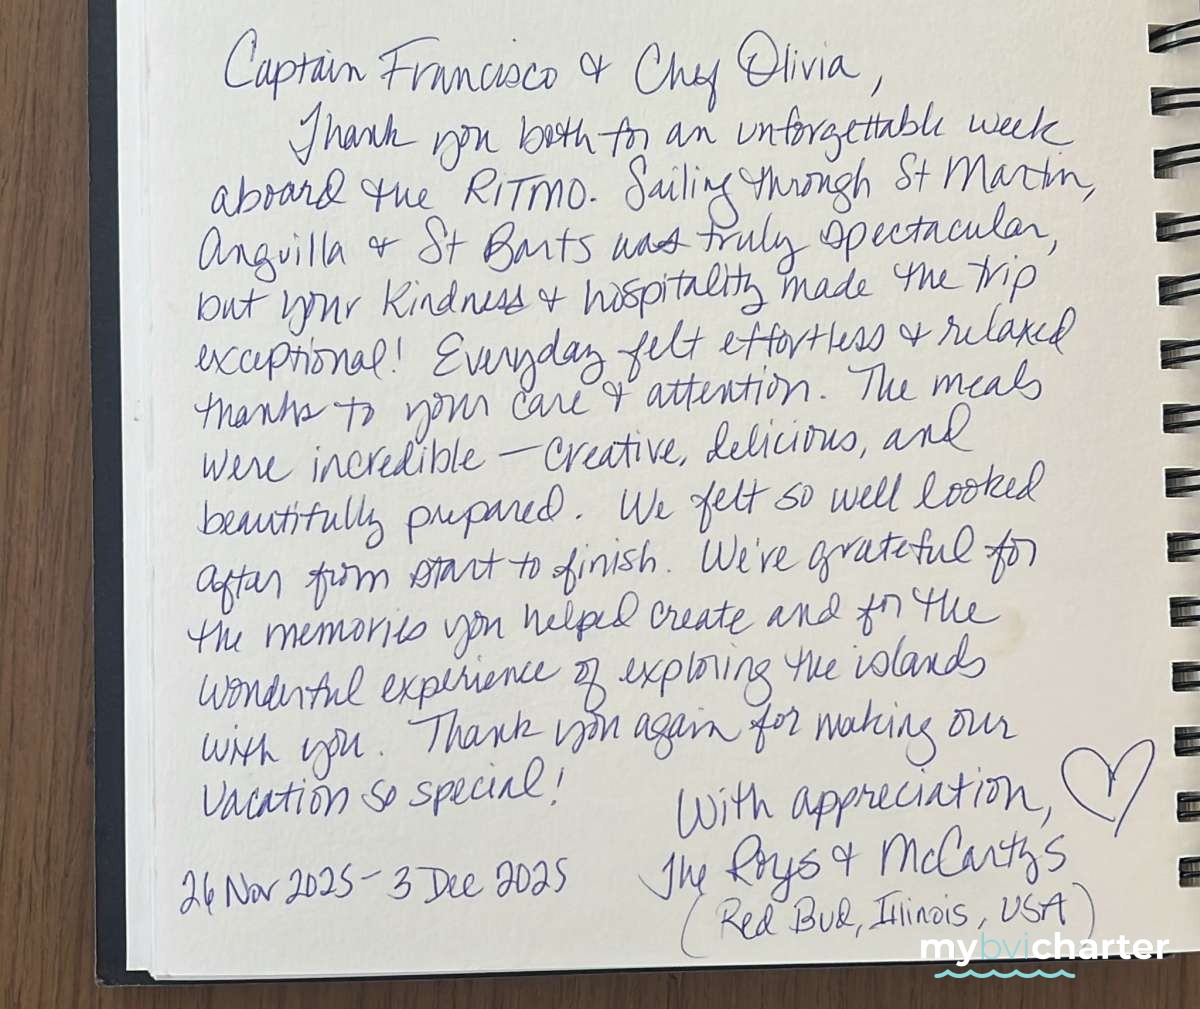 Captain Francisco & Chef Olivia,
Thank you both for an unforgettable week
aboard the RITMO. Sailing through St Martin,
Anguilla & St Barts was truly spectacular,
but your kindness & hospitality made the trip
exceptional! Everyday felt effortless & relaxed
thanks to your care & attention. The meals
were incredible – creative, delicious, and
beautifully prepared. We felt so well looked
after from start to finish. We're grateful for
the memories you helped create and for the
wonderful experience of exploring the islands
with you. Thank you again for making our
vacation so special!
With appreciation,
The Roys & McCartys
26 Nov 2025 – 3 Dec 2025
(Red Bud, Illinois, USA)
mybvicharter